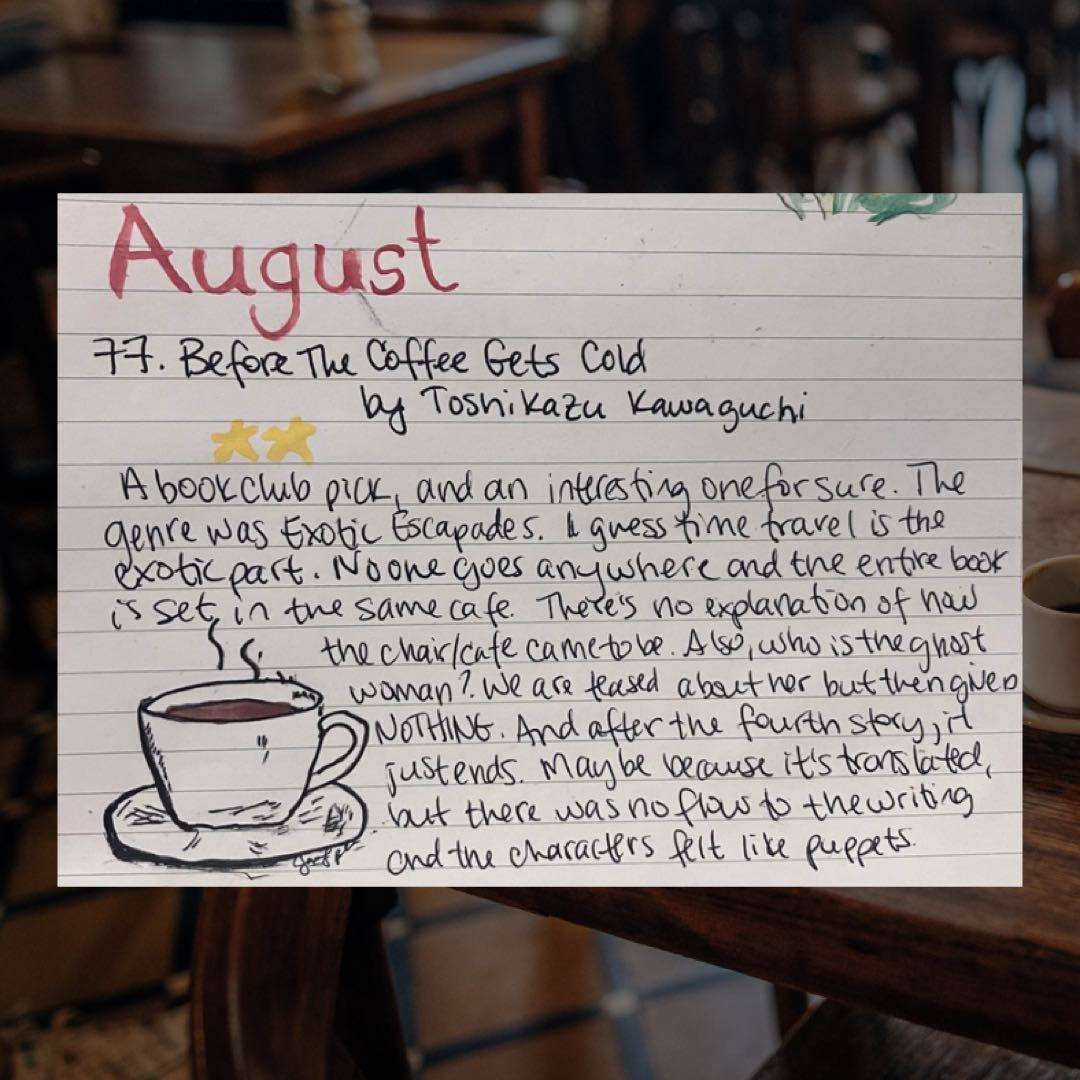 August
77. Before The Coffee Gets Cold
by Toshikazu Kawaguchi
A book club pick, and an interesting one for sure. The
genre was Exotic Escapades. I guess time travel is the
exotic part. No one goes anywhere and the entire book
is set in the same cafe. There's no explanation of how
the chair/cafe came to be. Also, who is the ghost
woman? We are teased about her but then given
NOTHING. And after the fourth story, it
just ends. Maybe because it's translated,
but there was no flow to the writing
and the characters felt like puppets.